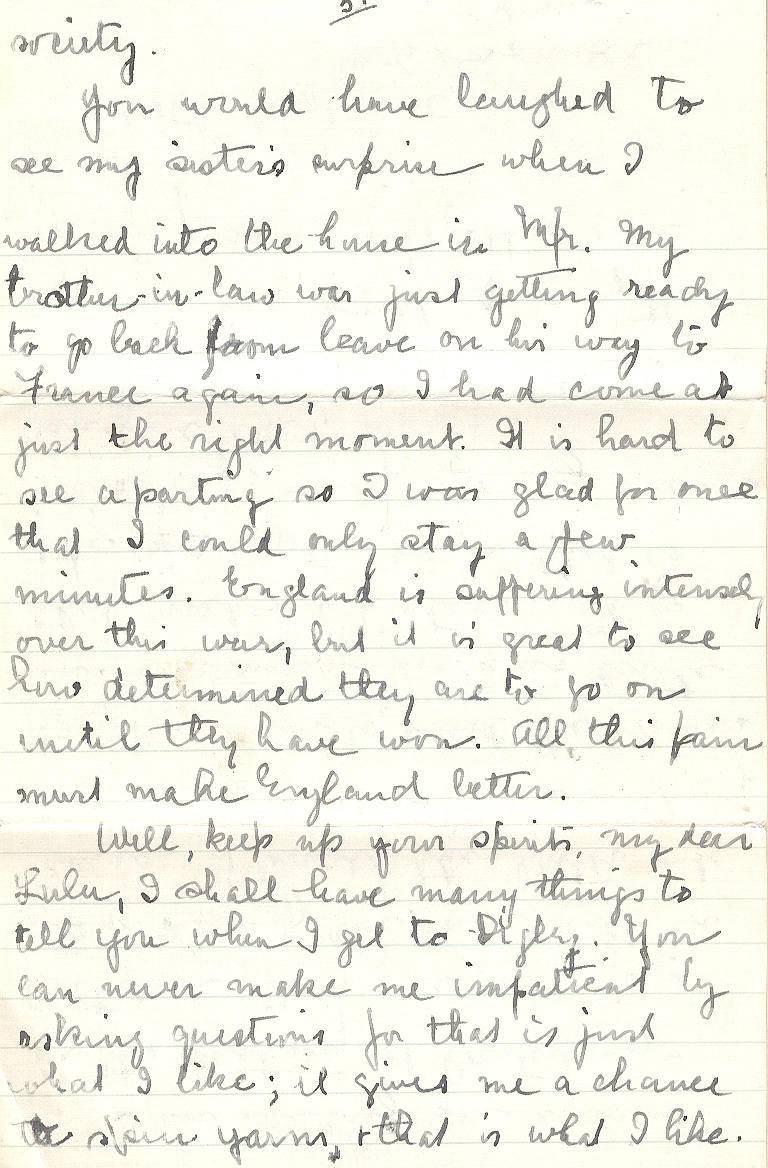 society.
You would have laughed to
see my sister's surprise when I
walked into the house in My
brother-in-law was just getting ready
to go back from leave on his way to
France again, so I had come at
just the right moment. It is hard to
see a parting so I was glad for once
that I could only stay a few
minutes. England is suffering intensely
over this war, but it is great to see
how determined they are to go on
until they have won. All this pain
must make England better.
Well, keep up your spirits, my dear
Lulu, I shall have many things to
tell you when I get to Digby. You
can never make me impatient by
asking questions for that is just
what I like; it gives me a chance
to spin yarns, + that is what I like.